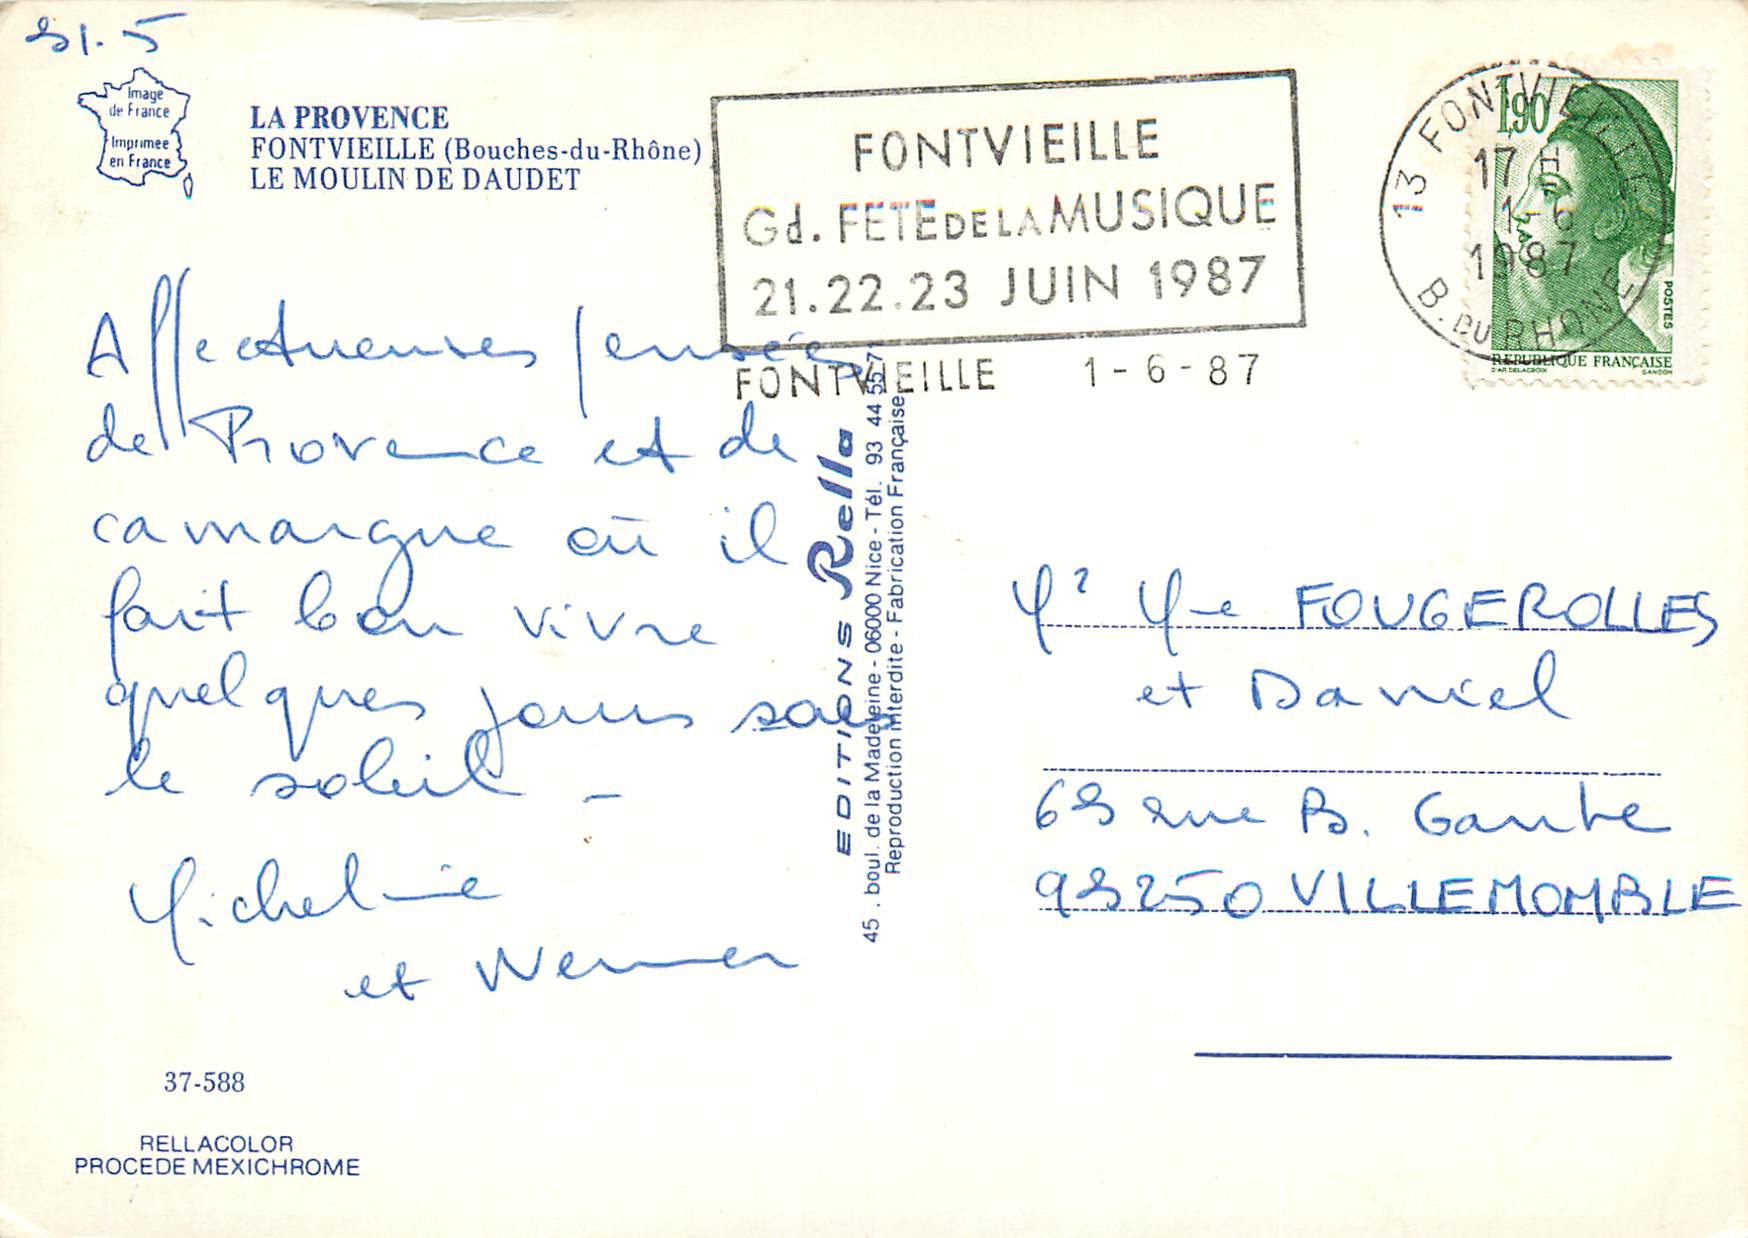 31.5
Image
de France
Imprimée
en France
LA PROVENCE
FONTVIEILLE (Bouches-du-Rhône)
LE MOULIN DE DAUDET
FONTVIEILLE
Gd. FETE DE LA MUSIQUE
21.22.23 JUIN 1987
FONTVIEILLE 1-6-87
13 FONTVIEILLE
17 H
1-6
1987
B. DU RHONE
1,90
POSTES
REPUBLIQUE FRANÇAISE
D'AP. DELACROIX GANDON
Affectueuses pensées
de Provence et de
camargue où il
fait bon vivre
quelques jours sous
le soleil -
Micheline
et Werner
EDITIONS Rella
45 . boul. de la Madeleine - 06000 Nice - Tél. 93 44 55 71
Reproduction interdite - Fabrication Française
Mr Mme FOUGEROLLES
et Daniel
63 rue B. Gante
93250 VILLEMOMBLE
37-588
RELLACOLOR
PROCEDE MEXICHROME